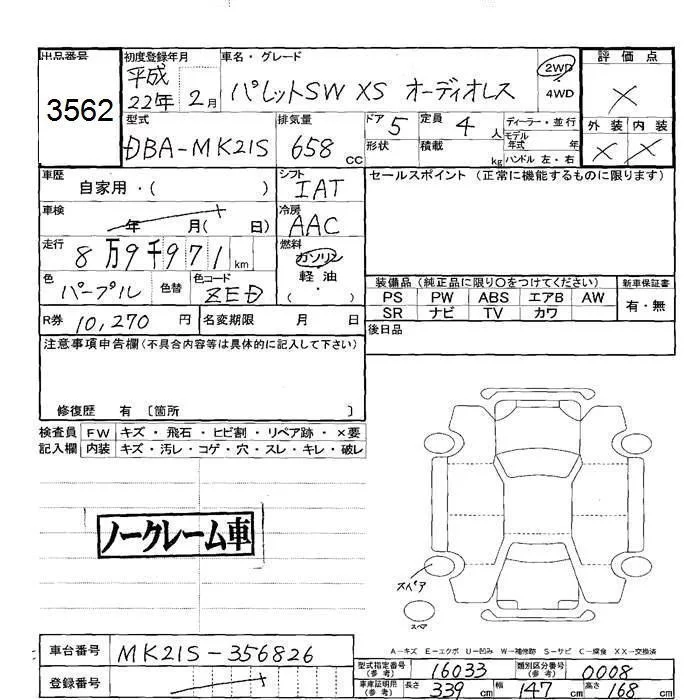 出品番号
3562
初度登録年月
平成
22年 2月
車名・グレード
パレットSW XS オーディオレス
2WD
4WD
評価点
×
外装 内装
× ×
型式
DBA-MK21S
排気量
658 cc
ドア 5
形状
定員 4 人
積載 kg
ディーラー・並行
モデル
年式 年
ハンドル 左・右
車歴
自家用・( )
シフト
IAT
セールスポイント (正常に機能するものに限ります)
車検
年 月( 日)
冷房
AAC
走行
8万9千971 km
燃料
ガソリン
軽油
・
( )
色
パープル
色替
色コード
ZED
装備品 (純正品に限り〇をつけてください)
PS PW ABS エアB AW
SR ナビ TV カワ
新車保証書
有・無
R券 10,270 円
名変期限 月 日
後日品
注意事項申告欄(不具合内容等は具体的に記入して下さい)
修復歴 有 〔箇所 〕
検査員
記入欄
FW キズ・飛石・ヒビ割・リペア跡・×要
内装 キズ・汚レ・コゲ・穴・スレ・キレ・破レ
ノークレーム車
スペア
スペア
A-キズ E-エクボ U-凹み W-補修跡 S-サビ C-腐食 XX-交換済
車台番号 MK21S-356826
登録番号
型式指定番号
(参考)
16033
類別区分番号
(参考)
0008
車庫証明用
(参考)
長さ 339 cm 幅 147 cm 高さ 168 cm